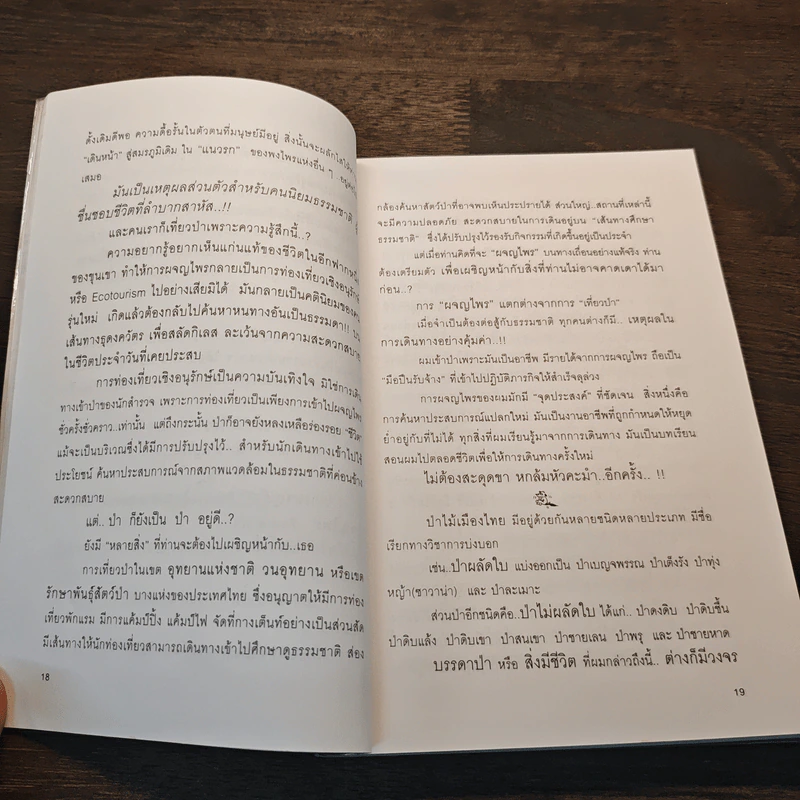 ดั้งเดิมดีพอ ความดื้อรั้นในตัวตนที่มนุษย์มีอยู่ สิ่งนั้นจะผลักไสให้
"เดินหน้า" สู่สมรภูมิเดิม ใน "แนวรก" ของพงไพรแห่งอื่น ๆ
เสมอ
มันเป็นเหตุผลส่วนตัวสำหรับคนนิยมธรรมชาติ
ชื่นชอบชีวิตที่ลำบากสาหัส..!!
และคนเราก็เที่ยวป่าเพราะความรู้สึกนี้..?
ความอยากรู้อยากเห็นแก่นแท้ของชีวิตในอีกฟากหนึ่ง
ของขุนเขา ทำให้การผจญไพรกลายเป็นการท่องเที่ยวเชิงอนุรักษ์
หรือ Ecotourism ไปอย่างเสียมิได้ มันกลายเป็นคตินิยมของคน
รุ่นใหม่ เกิดแล้วต้องกลับไปค้นหาหนทางอันเป็นธรรมดา!! บน
เส้นทางธุดงควัตร เพื่อสลัดกิเลส ละเว้นจากความสะดวกสบาย
ในชีวิตประจำวันที่เคยประสบ
การท่องเที่ยวเชิงอนุรักษ์เป็นความบันเทิงใจ มิใช่การเดิน
ทางเข้าป่าของนักสำรวจ เพราะการท่องเที่ยวเป็นเพียงการเข้าไปผจญไพร
ชั่วครั้งชั่วคราว..เท่านั้น แต่ถึงกระนั้น ป่าก็อาจยังหลงเหลือร่องรอย "ชีวิต"
แม้จะเป็นบริเวณซึ่งได้มีการปรับปรุงไว้.. สำหรับนักเดินทางเข้าไปใช้
ประโยชน์ ค้นหาประสบการณ์จากสภาพแวดล้อมในธรรมชาติที่ค่อนข้าง
สะดวกสบาย
แต่.. ป่า ก็ยังเป็น ป่า อยู่ดี..?
ยังมี "หลายสิ่ง" ที่ท่านจะต้องไปเผชิญหน้ากับ..เธอ
การเที่ยวป่าในเขต อุทยานแห่งชาติ วนอุทยาน หรือเขต
รักษาพันธุ์สัตว์ป่า บางแห่งของประเทศไทย ซึ่งอนุญาตให้มีการท่อง
เที่ยวพักแรม มีการแค้มป์ปิ้ง แค้มป์ไฟ จัดที่กางเต็นท์อย่างเป็นส่วนสัด
มีเส้นทางให้นักท่องเที่ยวสามารถเดินทางเข้าไปศึกษาดูธรรมชาติ ส่อง
18
กล้องค้นหาสัตว์ป่าที่อาจพบเห็นประปรายได้ ส่วนใหญ่..สถานที่เหล่านี้
จะมีความปลอดภัย สะดวกสบายในการเดินอยู่บน "เส้นทางศึกษา
ธรรมชาติ" ซึ่งได้ปรับปรุงไว้รองรับกิจกรรมที่เกิดขึ้นอยู่เป็นประจำ
แต่เมื่อท่านคิดที่จะ "ผจญไพร" บนทางเถื่อนอย่างแท้จริง ท่าน
ต้องเตรียมตัว เพื่อเผชิญหน้ากับสิ่งที่ท่านไม่อาจคาดเดาได้มา
ก่อน..?
การ "ผจญไพร" แตกต่างจากการ "เที่ยวป่า"
เมื่อจำเป็นต้องต่อสู้กับธรรมชาติ ทุกคนต่างก็มี.. เหตุผลใน
การเดินทางอย่างคุ้มค่า..!!
ผมเข้าป่าเพราะมันเป็นอาชีพ มีรายได้จากการผจญไพร ถือเป็น
"มือปืนรับจ้าง" ที่เข้าไปปฏิบัติภารกิจให้สำเร็จลุล่วง
การผจญไพรของผมมักมี "จุดประสงค์" ที่ชัดเจน สิ่งหนึ่งคือ
การค้นหาประสบการณ์แปลกใหม่ มันเป็นงานอาชีพที่ถูกกำหนดให้หยุด
ย่ำอยู่กับที่ไม่ได้ ทุกสิ่งที่ผมเรียนรู้มาจากการเดินทาง มันเป็นบทเรียน
สอนผมไปตลอดชีวิตเพื่อให้การเดินทางครั้งใหม่
ไม่ต้องสะดุดขา หกล้มหัวคะมำ..อีกครั้ง.. !!
ป่าไม้เมืองไทย มีอยู่ด้วยกันหลายชนิดหลายประเภท มีชื่อ
เรียกทางวิชาการบ่งบอก
เช่น..ป่าผลัดใบ แบ่งออกเป็น ป่าเบญจพรรณ ป่าเต็งรัง ป่าทุ่ง
หญ้า(ซาวาน่า) และ ป่าละเมาะ
ส่วนป่าอีกชนิดคือ..ป่าไม่ผลัดใบ ได้แก่.. ป่าดงดิบ ป่าดิบชื้น
ป่าดิบแล้ง ป่าดิบเขา ป่าสนเขา ป่าชายเลน ป่าพรุ และ ป่าชายหาด
บรรดาป่า หรือ สิ่งมีชีวิต ที่ผมกล่าวถึงนี้.. ต่างก็มีวงจร
19